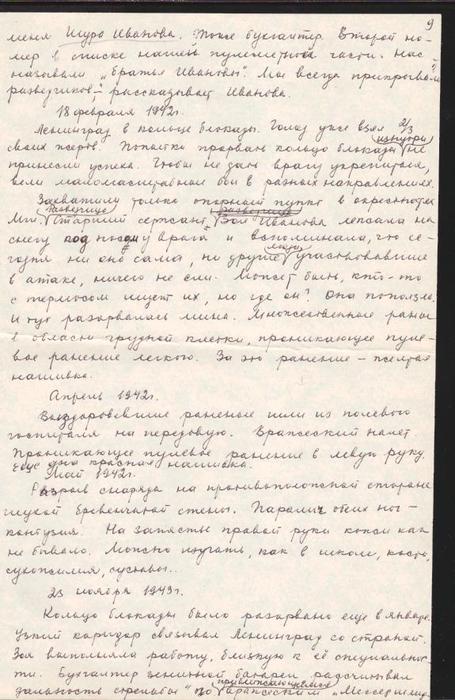 9
меня Шура Иванова. Тоже бухгалтер. Второй но-
мер в списке нашей пулеметной части. Нас
называли „братья Ивановы". Мы всегда прикрывали
разведчиков", - рассказывает Иванова.
18 февраля 1942г.
Ленинград в кольце блокады. Голод уже взял 2/3
своих жертв. Попытки прорвать кольцо блокады изнутри не
принесли успеха. Чтобы не дать врагу укрепиться,
вели маломасштабные бои в разных направлениях.
Захватили только опорный пункт в окрестностях
Мги. Старший сержант Зоя Иванова лежала на
снегу под носом у врага и вспоминала, что се-
годня ни она сама, ни другие участвовавшие
в атаке, ничего не ели. Может быть, кто-то
с термосом ищет их, но где он? Она поползла,
и тут разорвалась мина. Множественные раны
в области грудной клетки, проникающее пуле-
вое ранение легкого. За это ранение - желтая
нашивка.
Апрель 1942г.
Выздоровевшие раненые шли из полевого
госпиталя на передовую. Вражеский налет.
Проникающее пулевое ранение в левую руку.
Еще одна красная нашивка.
Май 1942г.
Разрыв снаряда на противоположной стороне
гладкой бревенчатой стены. Паралич обеих ног -
контузия. На запястье правой руки кожи как
не бывало. Можно изучать, как в школе, кости,
сухожилия, суставы...
23 ноября 1943г.
Кольцо блокады было разорвано еще в январе.
Узкий коридор связывал Ленинград со страной.
Зоя выполняла работу, близкую к её специальнос-
ти. Бухгалтер зенитной батареи рассчитывал
дальность стрельбы "по приближающемуся вражескому